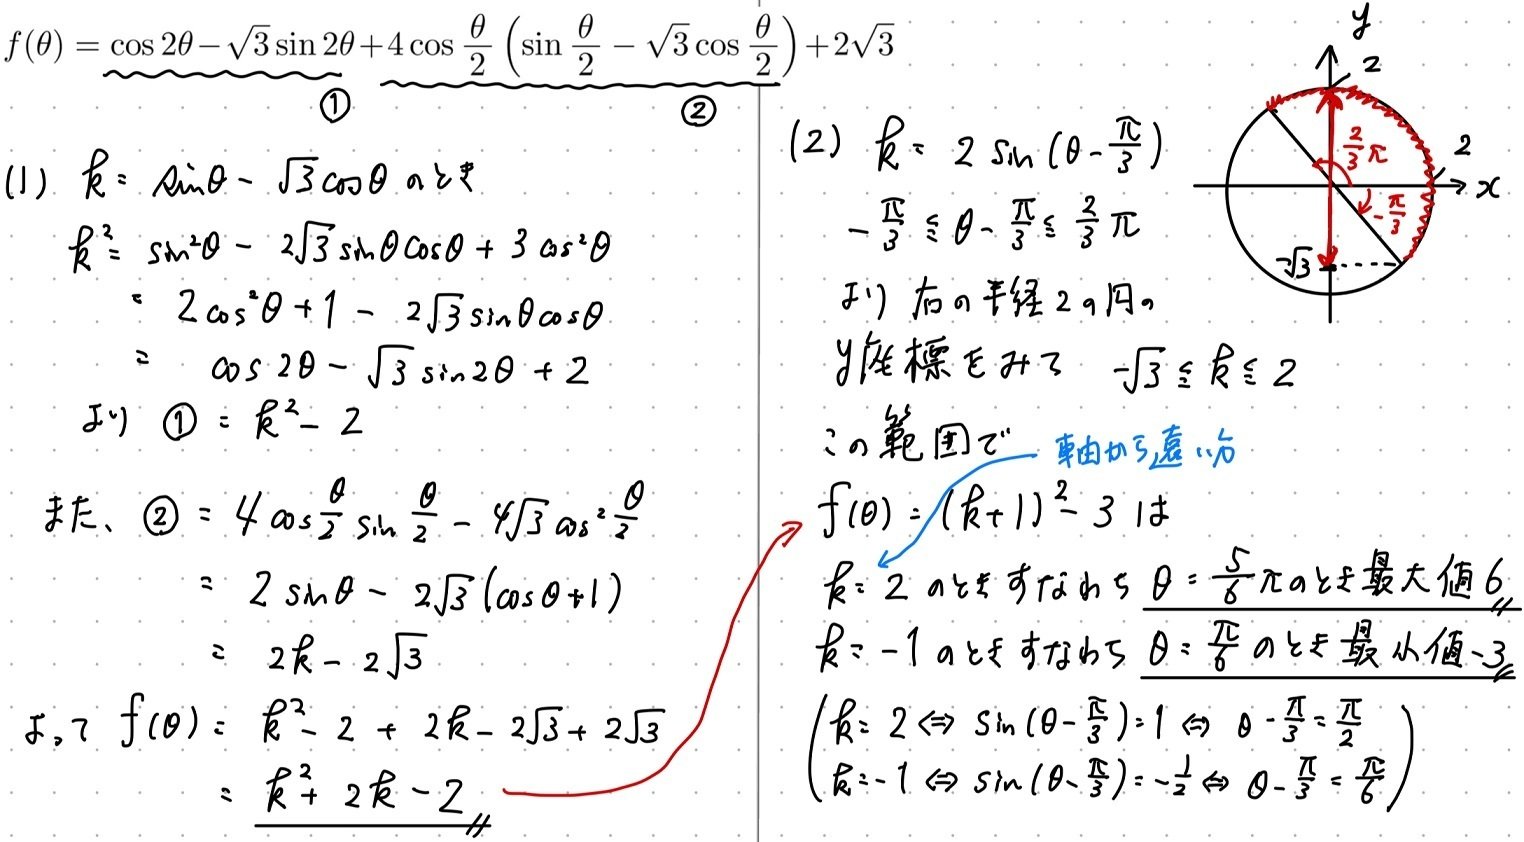 f(θ) = cos 2θ − √3 sin 2θ + 4 cos θ/2 (sin θ/2 − √3 cos θ/2) + 2√3
① ②
(1) k = sinθ − √3 cosθ のとき
k² = sin²θ − 2√3 sinθ cosθ + 3 cos²θ
= 2cos²θ + 1 − 2√3 sinθ cosθ
= cos 2θ − √3 sin 2θ + 2
より ① = k² − 2
また、② = 4 cos θ/2 sin θ/2 − 4√3 cos² θ/2
= 2 sinθ − 2√3 (cosθ + 1)
= 2k − 2√3
よって f(θ) = k² − 2 + 2k − 2√3 + 2√3
= k² + 2k − 2
(2) k = 2 sin(θ − π/3)
−π/3 ≦ θ − π/3 ≦ 2/3 π
より 右の半径2の円の
y座標をみて −√3 ≦ k ≦ 2
この範囲で
軸から遠い方
f(θ) = (k+1)² − 3 は
k = 2 のときすなわち θ = 5/6 π のとき最大値 6
k = −1 のときすなわち θ = π/6 のとき最小値 −3
k = 2 ⇔ sin(θ − π/3) = 1 ⇔ θ − π/3 = π/2
k = −1 ⇔ sin(θ − π/3) = −1/2 ⇔ θ − π/3 = π/6
y
2
2/3 π
2
x
−π/3
−√3